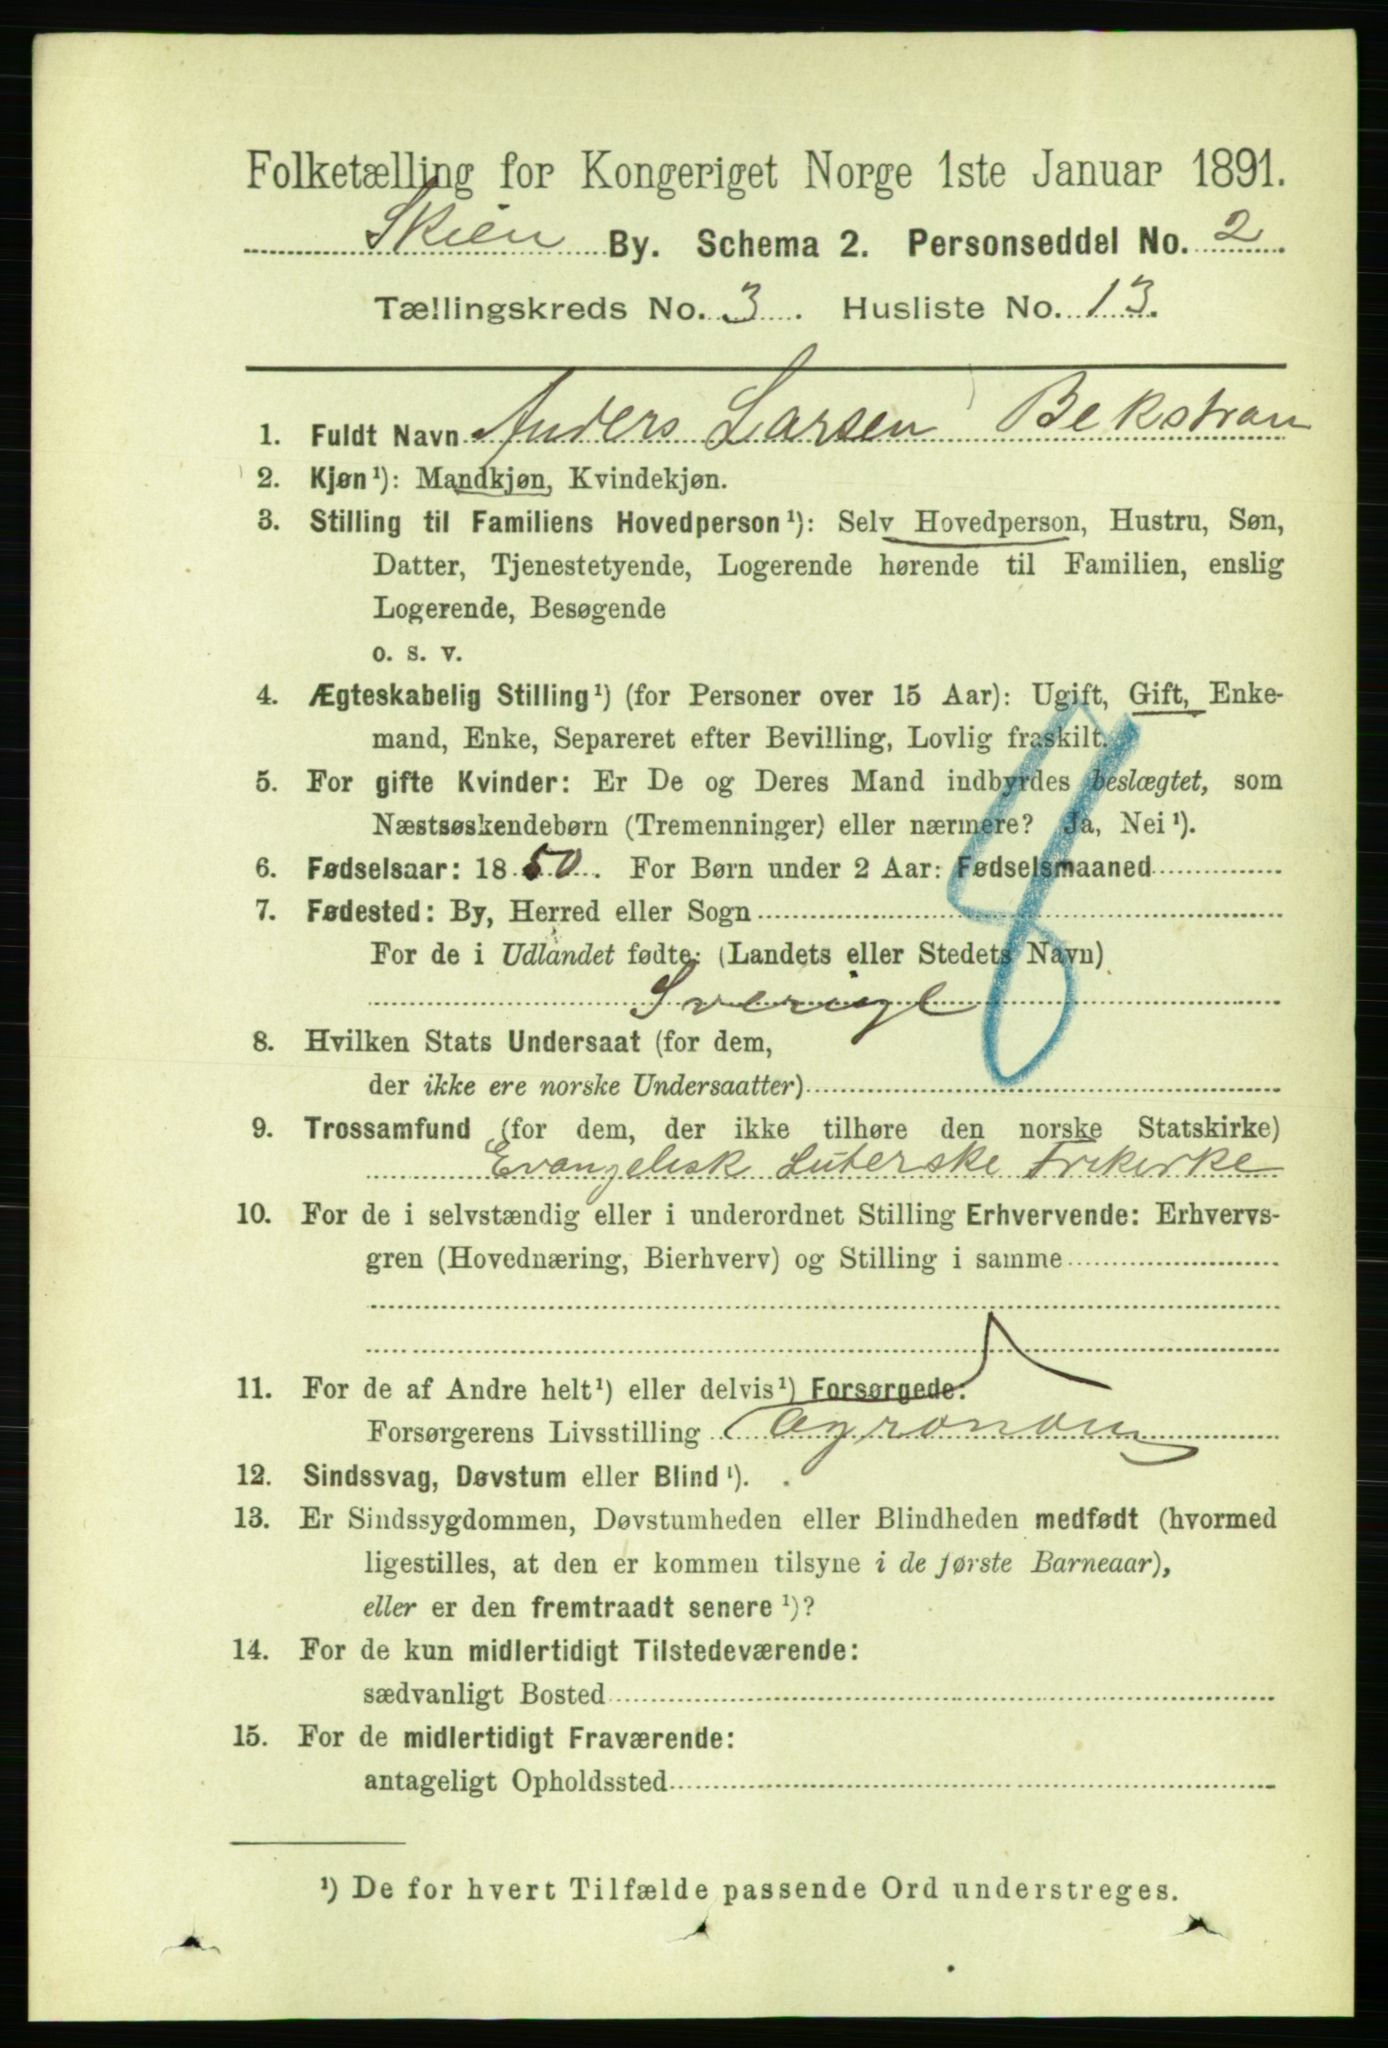 Folketælling for Kongeriget Norge 1ste Januar 1891.
Skien By. Schema 2. Personseddel No. 2
Tællingskreds No. 3. Husliste No. 13.
1. Fuldt Navn Anders Larsen Bekstran
2. Kjøn ¹): Mandkjøn, Kvindekjøn.
3. Stilling til Familiens Hovedperson ¹): Selv Hovedperson, Hustru, Søn,
Datter, Tjenestetyende, Logerende hørende til Familien, enslig
Logerende, Besøgende
o. s. v.
4. Ægteskabelig Stilling ¹) (for Personer over 15 Aar): Ugift, Gift, Enke-
mand, Enke, Separeret efter Bevilling, Lovlig fraskilt.
5. For gifte Kvinder: Er De og Deres Mand indbyrdes beslægtet, som
Næstsøskendebørn (Tremenninger) eller nærmere? Ja, Nei ¹).
6. Fødselsaar: 1850. For Børn under 2 Aar: Fødselsmaaned
7. Fødested: By, Herred eller Sogn
For de i Udlandet fødte: (Landets eller Stedets Navn)
Sverige
8. Hvilken Stats Undersaat (for dem,
der ikke ere norske Undersaatter)
9. Trossamfund (for dem, der ikke tilhøre den norske Statskirke)
Evangelisk Luterske Frikirke
10. For de i selvstændig eller i underordnet Stilling Erhvervende: Erhvervs-
gren (Hovednæring, Bierhverv) og Stilling i samme
11. For de af Andre helt ¹) eller delvis ¹) Forsørgede:
Forsørgerens Livsstilling Agronom
12. Sindssvag, Døvstum eller Blind ¹).
13. Er Sindssygdommen, Døvstumheden eller Blindheden medfødt (hvormed
ligestilles, at den er kommen tilsyne i de første Barneaar),
eller er den fremtraadt senere ¹)?
14. For de kun midlertidigt Tilstedeværende:
sædvanligt Bosted
15. For de midlertidigt Fraværende:
antageligt Opholdssted
¹) De for hvert Tilfælde passende Ord understreges.